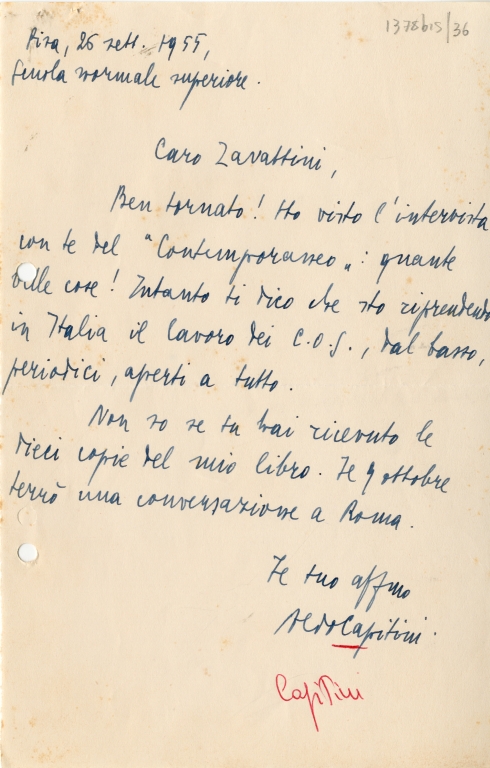 1378bis/36
Pisa, 26 sett. 1955,
Scuola normale superiore.
Caro Zavattini,
Ben tornato! Ho visto l'intervista
con te del "Contemporaneo„: quante
belle cose! Intanto ti dico che sto riprendendo
in Italia il lavoro dei C.O.S., dal basso,
periodici, aperti a tutto.
Non so se tu hai ricevuto le
dieci copie del mio libro. Il 9 ottobre
terrò una conversazione a Roma.
Il tuo affmo
Aldo Capitini.
Capitini